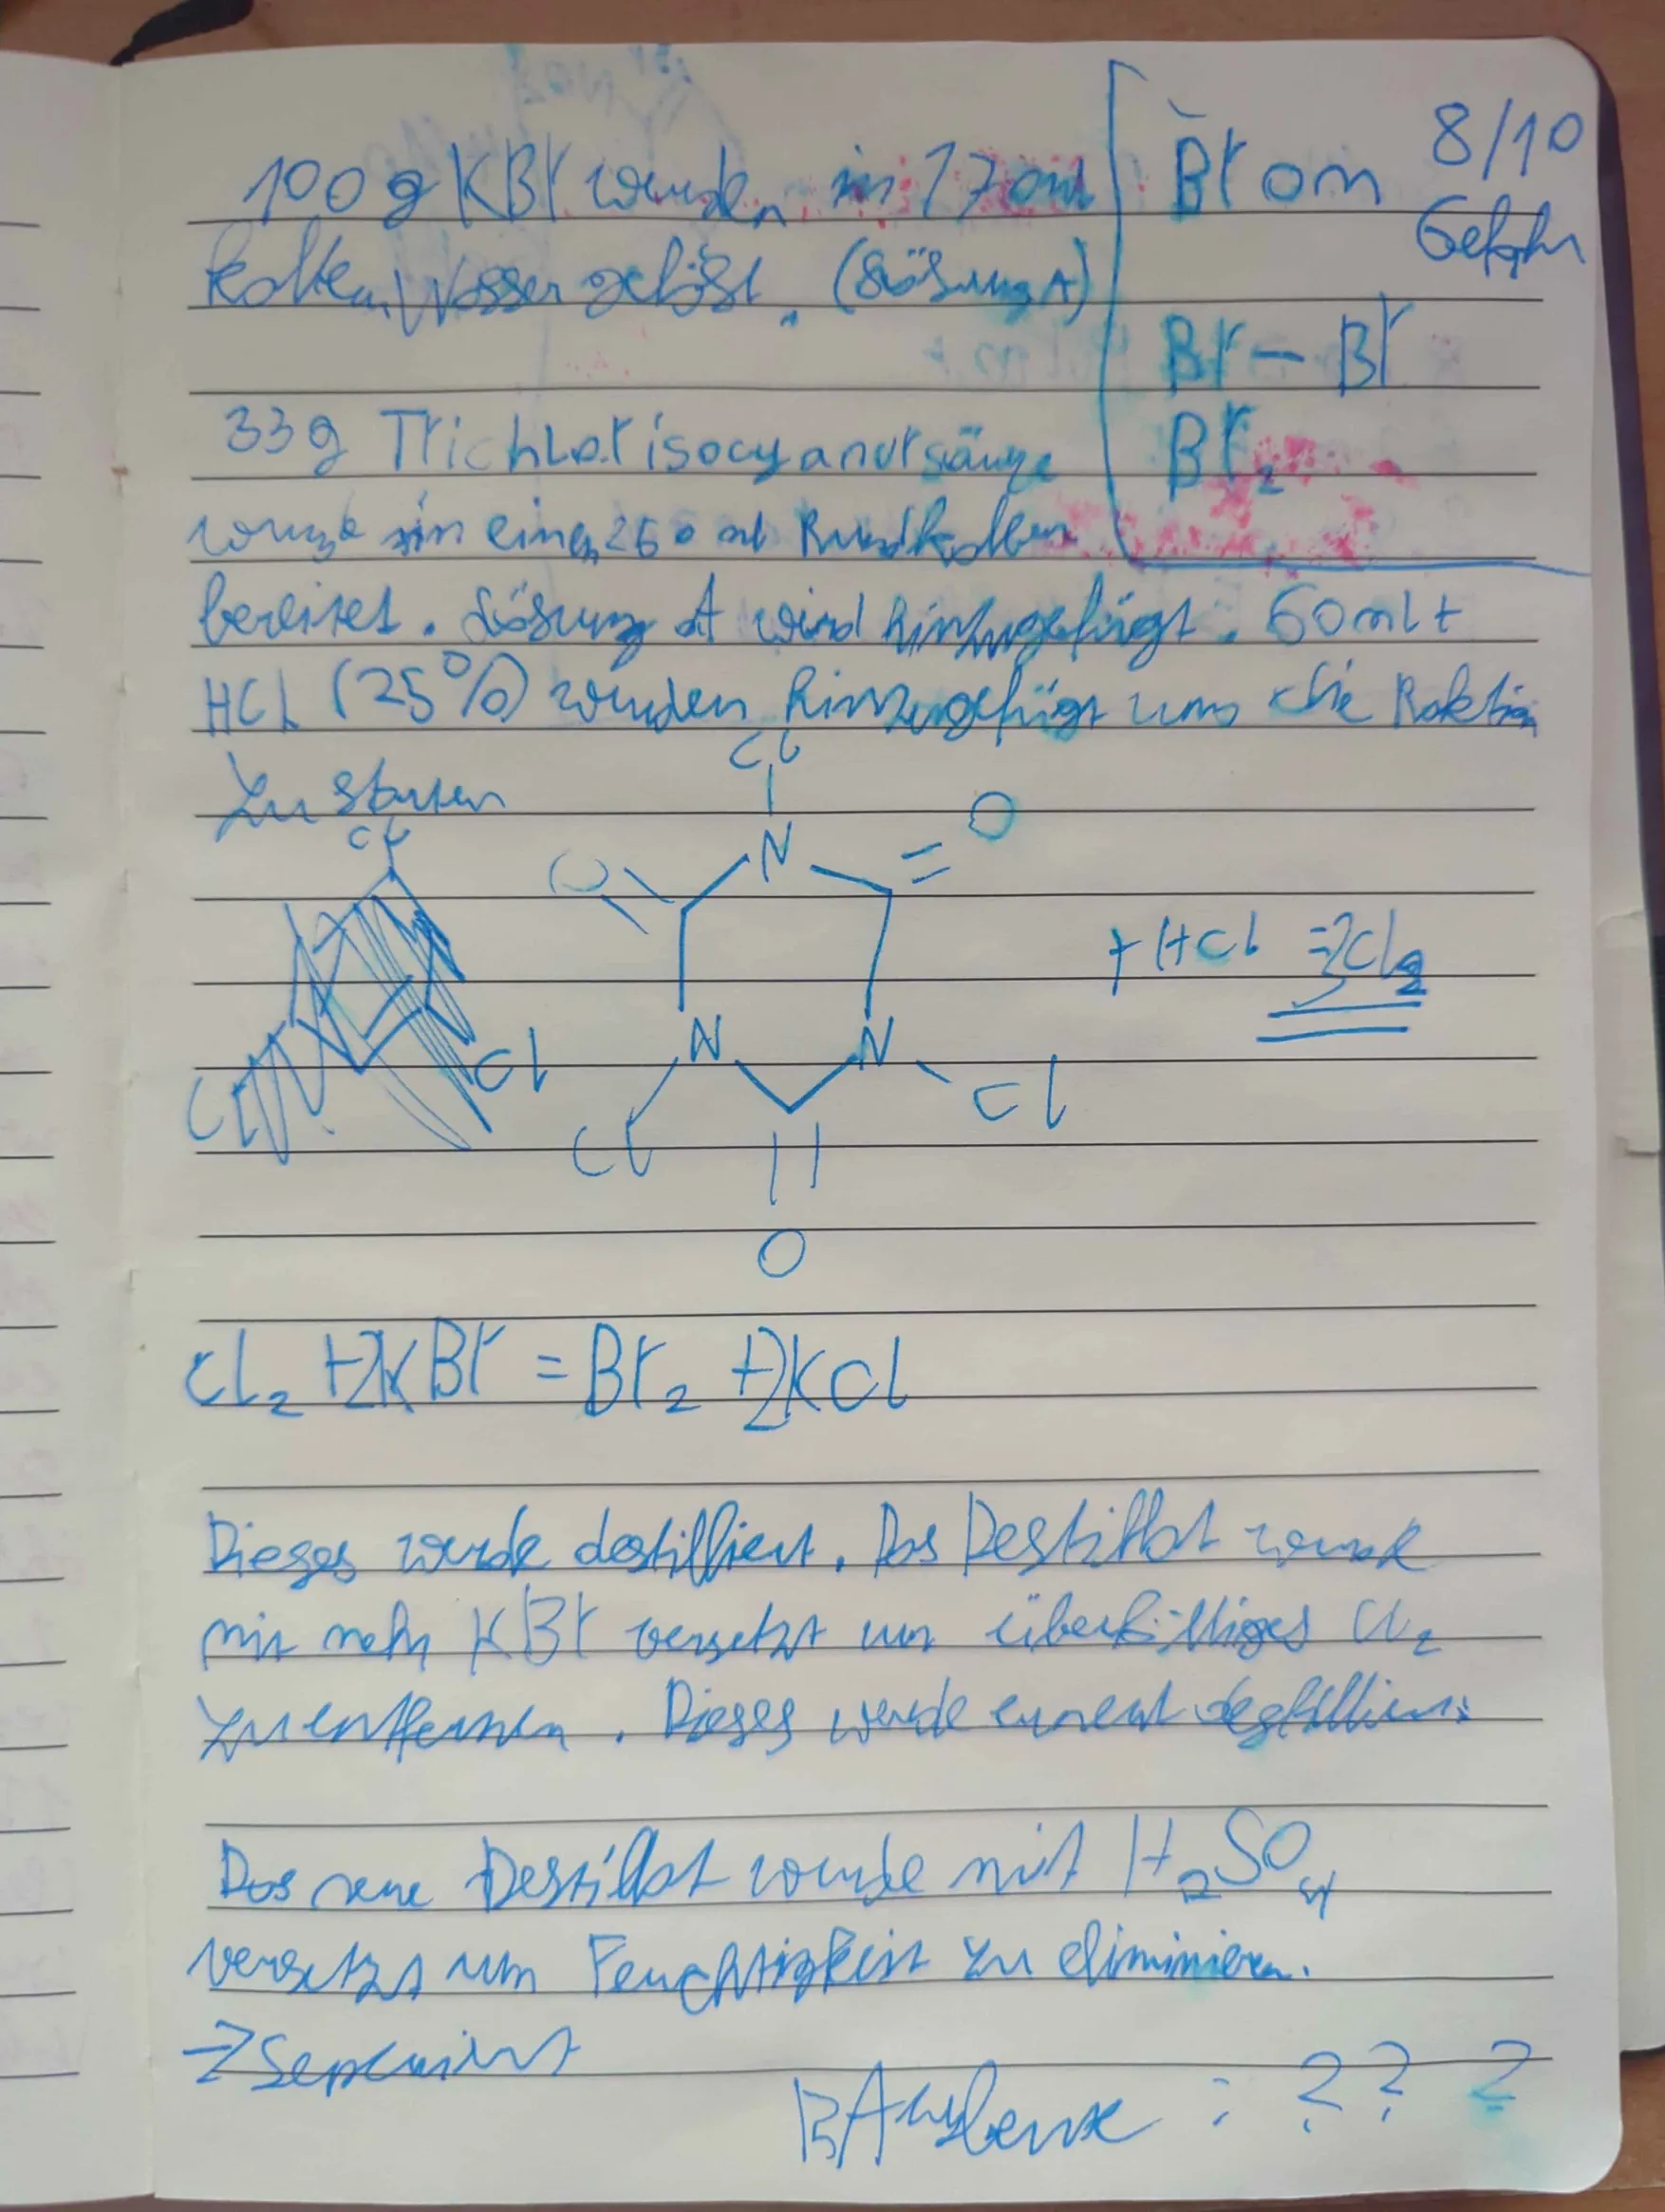 100 g KBr wurden in 170 ml
kaltem Wasser gelöst. (Lösung A)
Brom
8/10
Gefahr
Br – Br
Br₂
33g Trichlorisocyanursäure
wurde in einem 250 ml Rundkolben
bereitet. Lösung A wird hinzugefügt. 60ml +
HCl (25%) wurden hinzugefügt um die Raktion
zu starten
Cl
Cl
N
O
O
+ HCl ⇒ Cl₂
N
N
Cl
Cl
Cl
Cl
O
Cl₂ + 2KBr = Br₂ + 2KCl
Dieses wurde destilliert. Das Destillat wurde
mit mehr KBr versetzt um überfälliges Cl₂
zu entfernen. Dieses wurde erneut destilliert.
Das neue Destillat wurde mit H₂SO₄
versetzt um Feuchtigkeit zu eliminieren.
→ Separiert
Ausbeute : ? ? ?